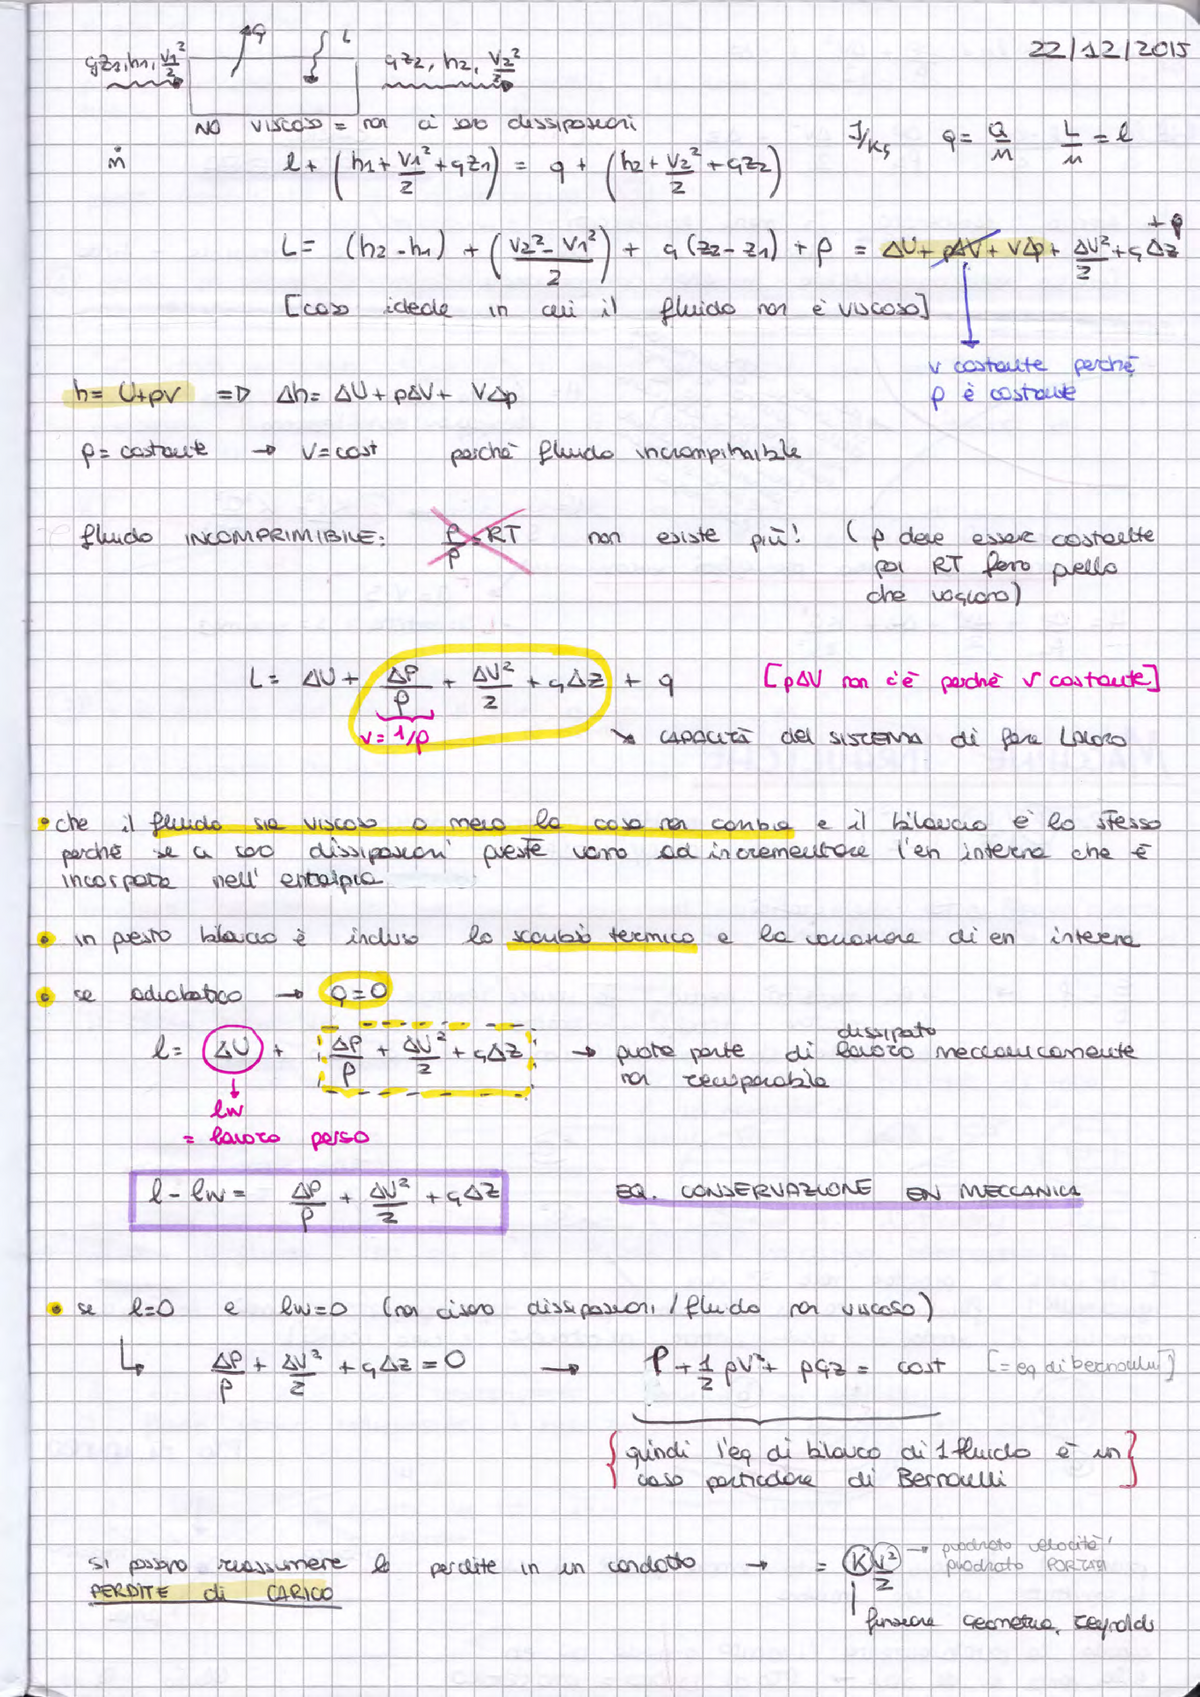 22/12/2015
gz1, h1, v1²/2 q L gz2, h2, v2²/2
NO VISCOSO = non ci sono dissipazioni
J/kg q = Q/m L/m = l
ṁ l + (h1 + v1²/2 + gz1) = q + (h2 + v2²/2 + gz2)
L = (h2 - h1) + (v2² - v1²/2) + g (z2 - z1) + q = ΔU + pΔV + VΔp + ΔV²/2 + gΔz + q
[caso ideale in cui il fluido non è viscoso]
v costante perchè
ρ è costante
h = U+pv => Δh = ΔU + pΔV + VΔp
ρ = costante → v = cost perchè fluido incomprimibile
fluido INCOMPRIMIBILE: p/ρ = RT non esiste più! (ρ deve essere costante
poi RT fanno quello
che vogliono)
L = ΔU + Δp/ρ + ΔV²/2 + gΔz + q [pΔV non c'è perchè v costante]
v = 1/ρ ↘ CAPACITÀ del SISTEMA di fare Lavoro
• che il fluido sia viscoso o meno la cosa non cambia e il bilancio è lo stesso
perchè se ci sono dissipazioni queste vanno ad incrementare l'en interna che è
incorporata nell'entalpia
• in questo bilancio è incluso lo scambio termico e la variazione di en interna
• se adiabatico → q=0
l = ΔU + Δp/ρ + ΔV²/2 + gΔz → quota parte di lavoro dissipato meccanicamente
non recuperabile
lw
= lavoro perso
l - lw = Δp/ρ + ΔV²/2 + gΔz EQ. CONSERVAZIONE EN MECCANICA
• se l=0 e lw=0 (non ci sono dissipazioni / fluido non viscoso)
↳ Δp/ρ + ΔV²/2 + gΔz = 0 → P + 1/2 ρV² + ρgz = cost [= eq di bernoulli]
{quindi l'eq di bilancio di 1 fluido è un
caso particolare di Bernoulli}
si possono riassumere le perdite in un condotto → = K v²/2 → quadrato velocità /
quadrato PORTATA
PERDITE di CARICO
funzione Geometria, Reynolds